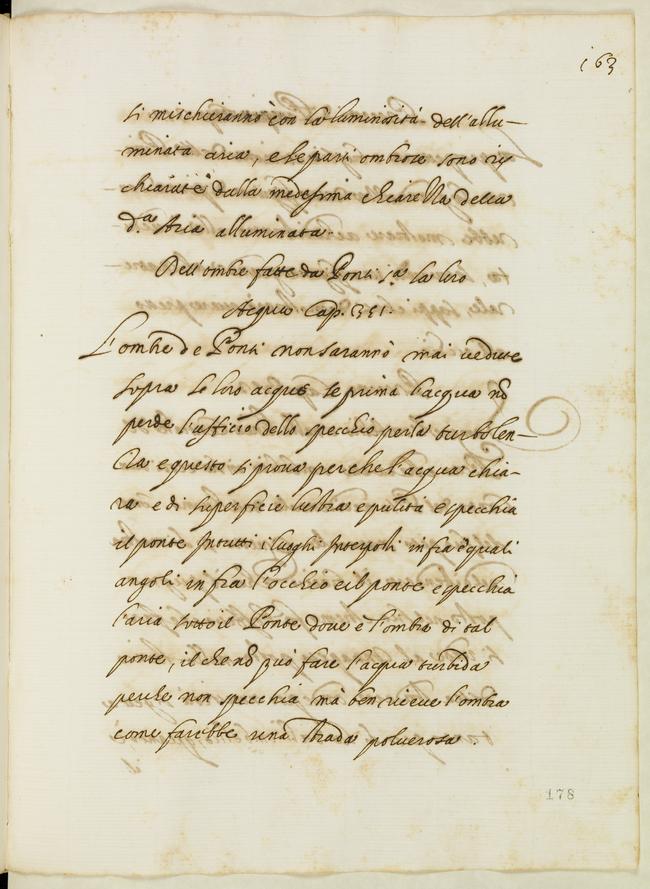 163
si mischieranno con la luminosità dell'allu-
minata aria, e le parti ombrose sono ris
chiarate dalla medesima chiarezza della
d.ª Aria alluminata.
Dell'ombre fatte da Ponti s.ª la loro
Acqua Cap. 351.
L'ombre de Ponti non saranno mai vedute
sopra le loro acque se prima l'acqua nõ
perde l'ufficio dello specchio per la turbolen-
za e questo si prova perche l'acqua chia-
ra e di superficie lustra e pulita e specchia
il ponte Intutti i luoghi Interposti infra equali
angoli infra l'occhio e il ponte e specchia
l'aria sotto il Ponte dove è l'ombra di tal
ponte, il che nõ può fare l'acqua turbida
perche non specchia mà ben riceve l'ombra
come farebbe una strada polverosa.
178